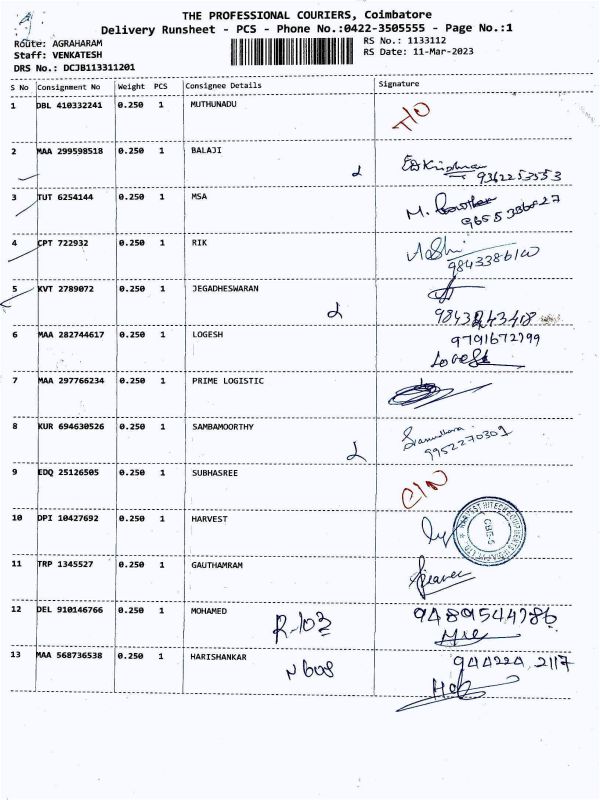 THE PROFESSIONAL COURIERS, Coimbatore
Delivery Runsheet - PCS - Phone No.:0422-3505555 - Page No.:1
Route: AGRAHARAM
RS No.: 1133112
Staff: VENKATESH
RS Date: 11-Mar-2023
DRS No.: DCJB113311201
S No Consignment No Weight PCS Consignee Details Signature
1 DBL 410332241 0.250 1 MUTHUNADU
2 MAA 299598518 0.250 1 BALAJI
9362253553
3 TUT 6254144 0.250 1 MSA
M.
4 CPT 722932 0.250 1 RIK
5 KVT 2789072 0.250 1 JEGADHESWARAN
6 MAA 282744617 0.250 1 LOGESH
9791672799
7 MAA 297766234 0.250 1 PRIME LOGISTIC
8 KUR 694630526 0.250 1 SAMBAMOORTHY
9952270301
9 EDQ 25126505 0.250 1 SUBHASREE
10 DPI 10427692 0.250 1 HARVEST
11 TRP 1345527 0.250 1 GAUTHAMRAM
12 DEL 910146766 0.250 1 MOHAMED
R-103
9489544786
13 MAA 568736538 0.250 1 HARISHANKAR
N 608
944224 2117